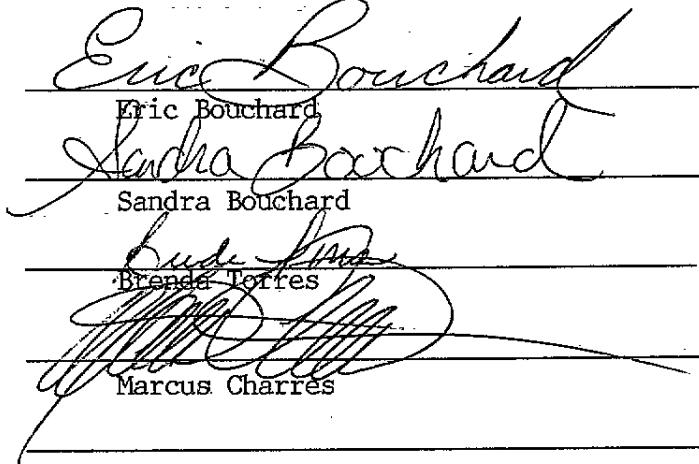 Eric Bouchard
Eric Bouchard
Sandra Bouchard
Sandra Bouchard
Brenda Torres
Marcus Charres